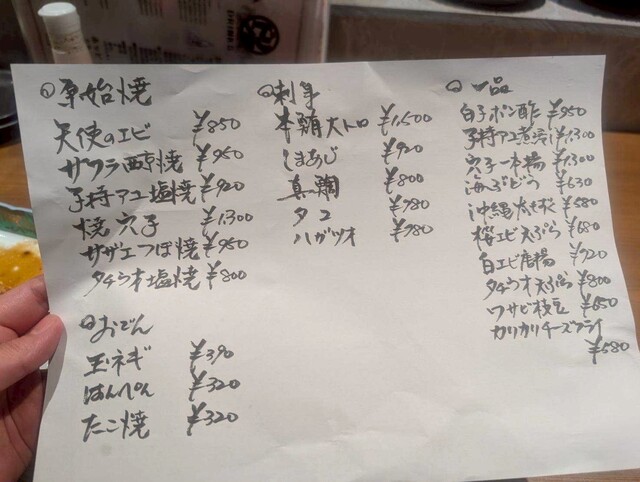 原始焼
天使のエビ ¥850
サワラ西京焼 ¥950
子持アユ塩焼 ¥920
焼穴子 ¥1,300
サザエつぼ焼 ¥950
タチウオ塩焼 ¥800
おでん
玉ネギ ¥390
はんぺん ¥320
たこ焼 ¥320
刺身
本鮪大トロ ¥1,500
しまあじ ¥920
真鯛 ¥800
タコ ¥780
ハガツオ ¥780
一品
白子ポン酢 ¥950
子持アユ煮浸 ¥1300
穴子一本揚 ¥1300
海ぶどう ¥630
沖縄太もずく ¥580
桜エビ天ぷら ¥680
白エビ唐揚 ¥720
タチウオ天ぷら ¥800
ワサビ枝豆 ¥650
カリカリチーズフライ
¥580